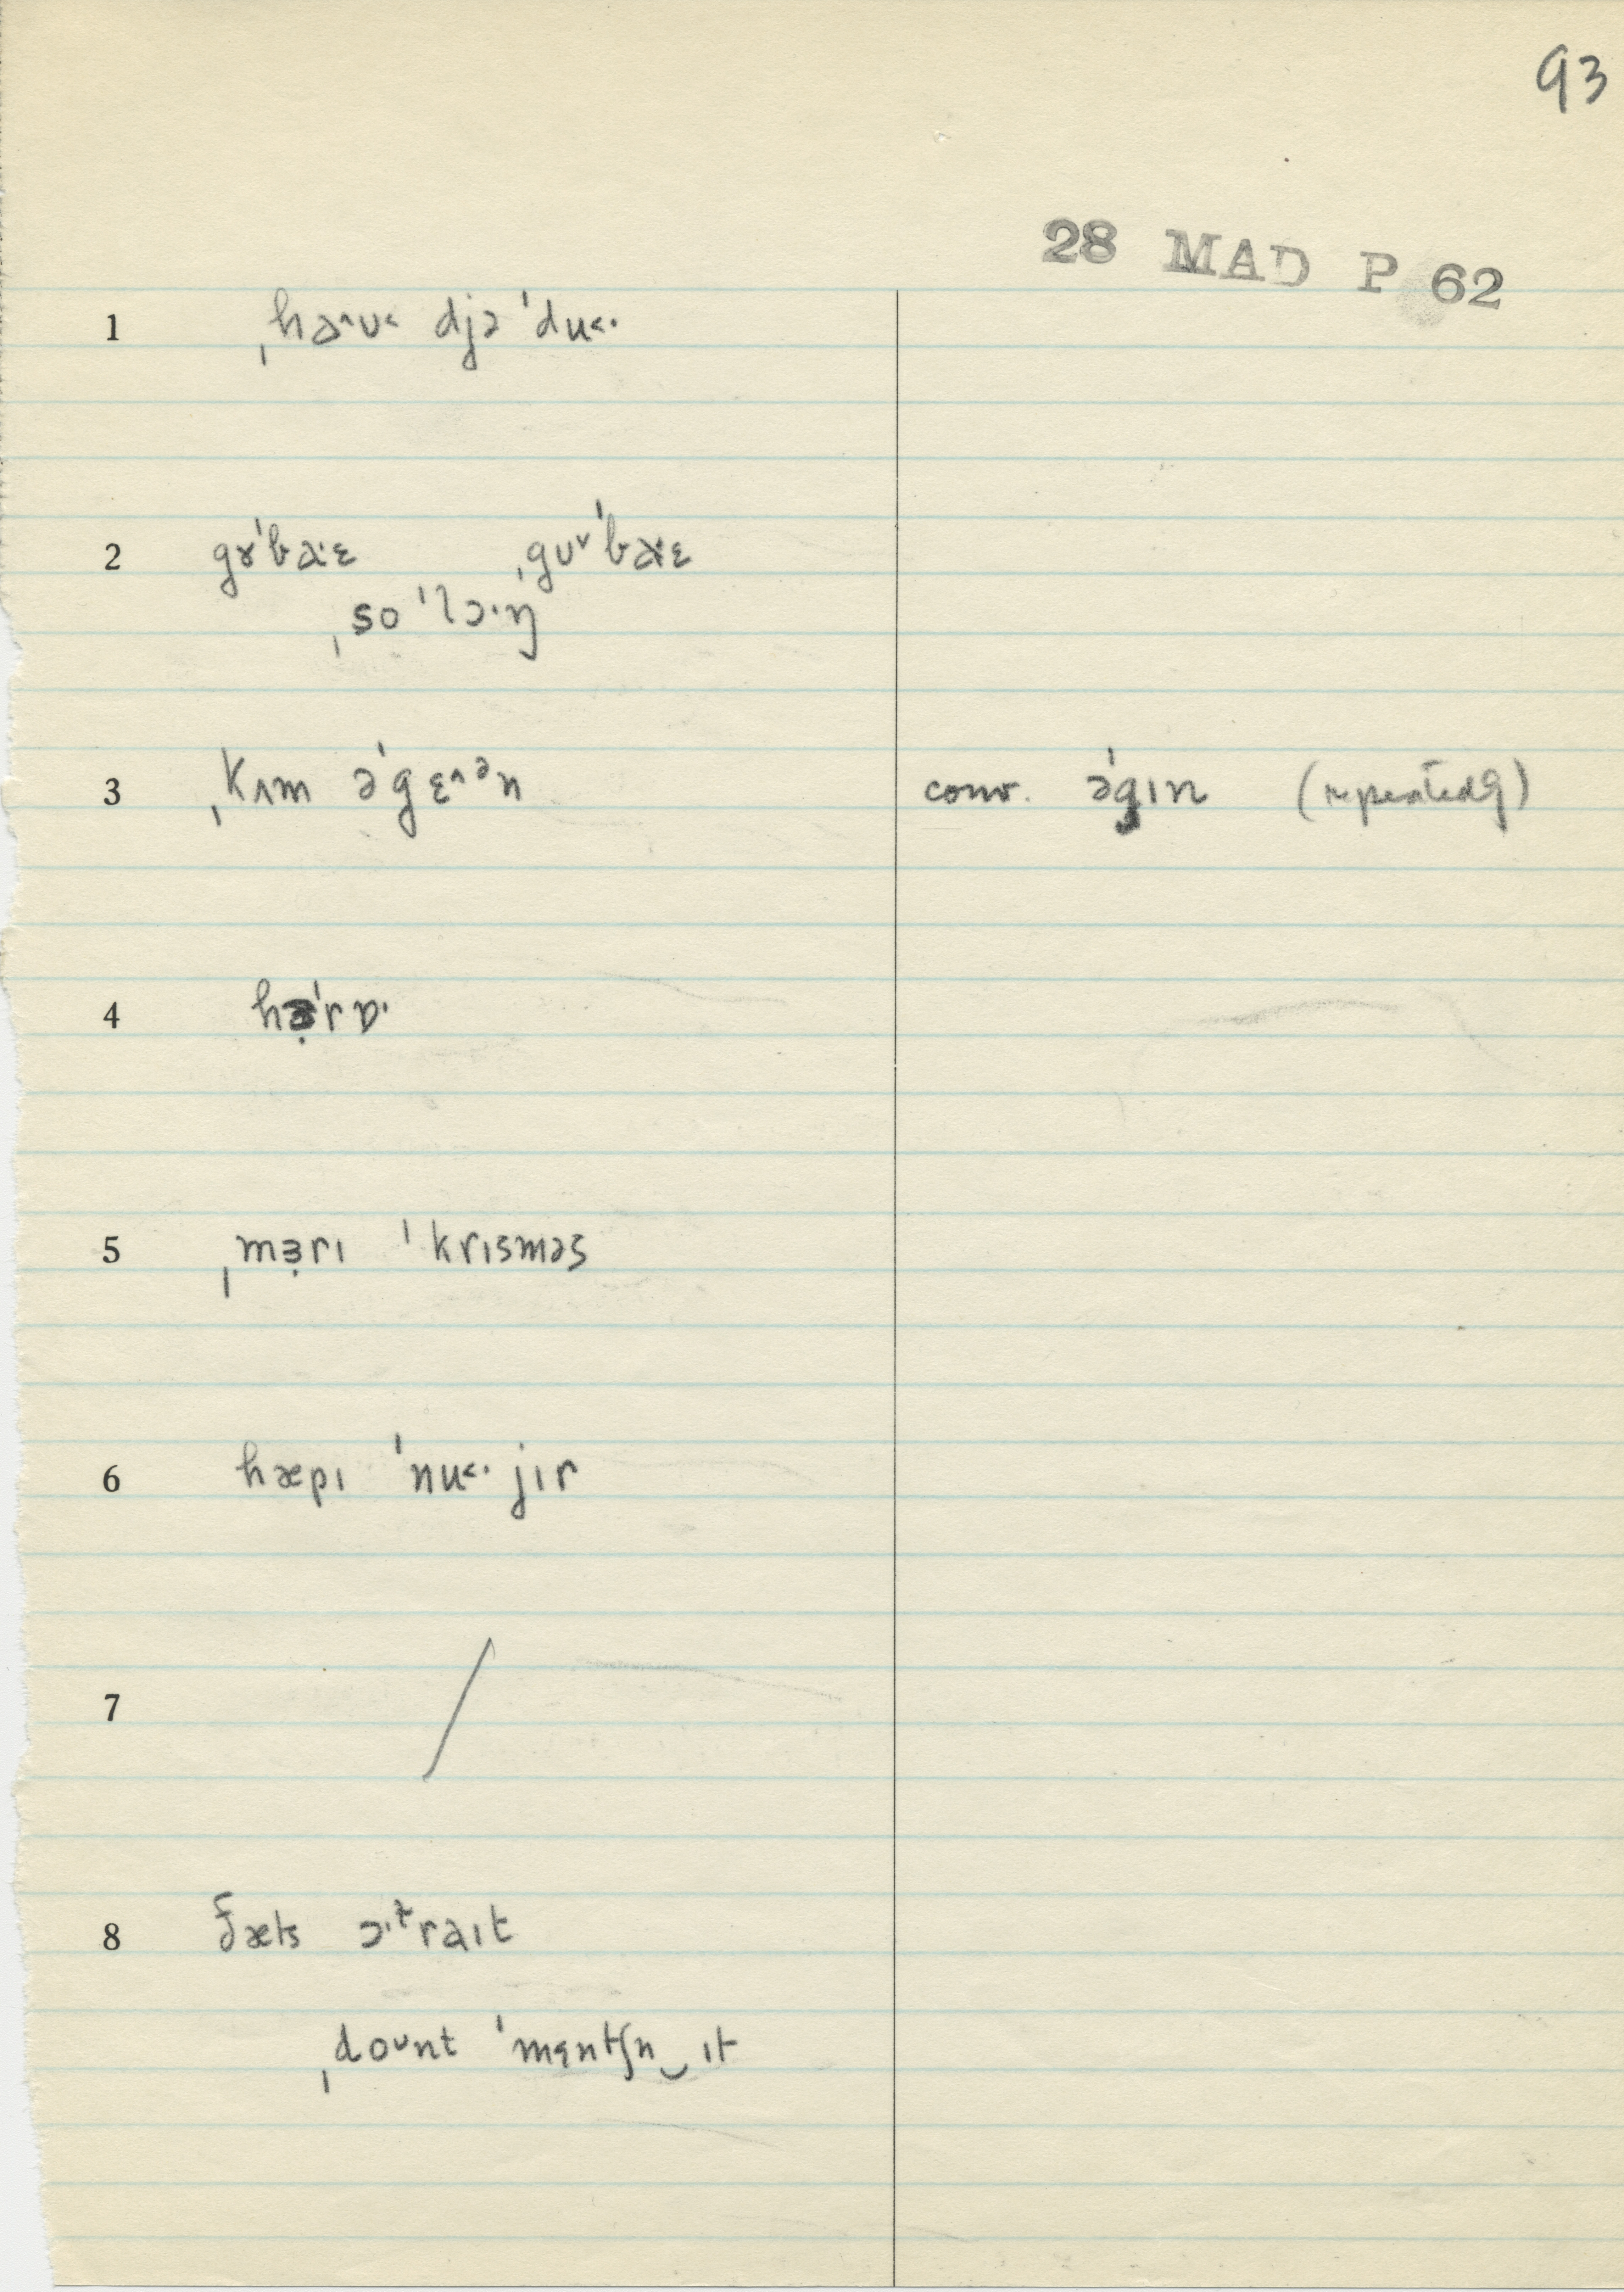 93
28 MAD P 62
1 ˌhɑ^ʊ˂ djə ˈdu˂·
2 gɤˈbɑ·ɛ ˌgʊ˅ˈbɑ·ɛ
ˌso ˈlɔ·ŋ
3 ˌkʌm əˈgɛ^ᵊn conv. əˈgɪn (repeatedly)
4 hə̣ˈrɒ·
5 ˌmɜ̣rɪ ˈkrɪsməs
6 hæpɪ ˈnu˂· jɪr
7 /
8 ðæts ɔ·ɫraɪt
ˌdoʊnt ˈmɛntʃn‿ɪt